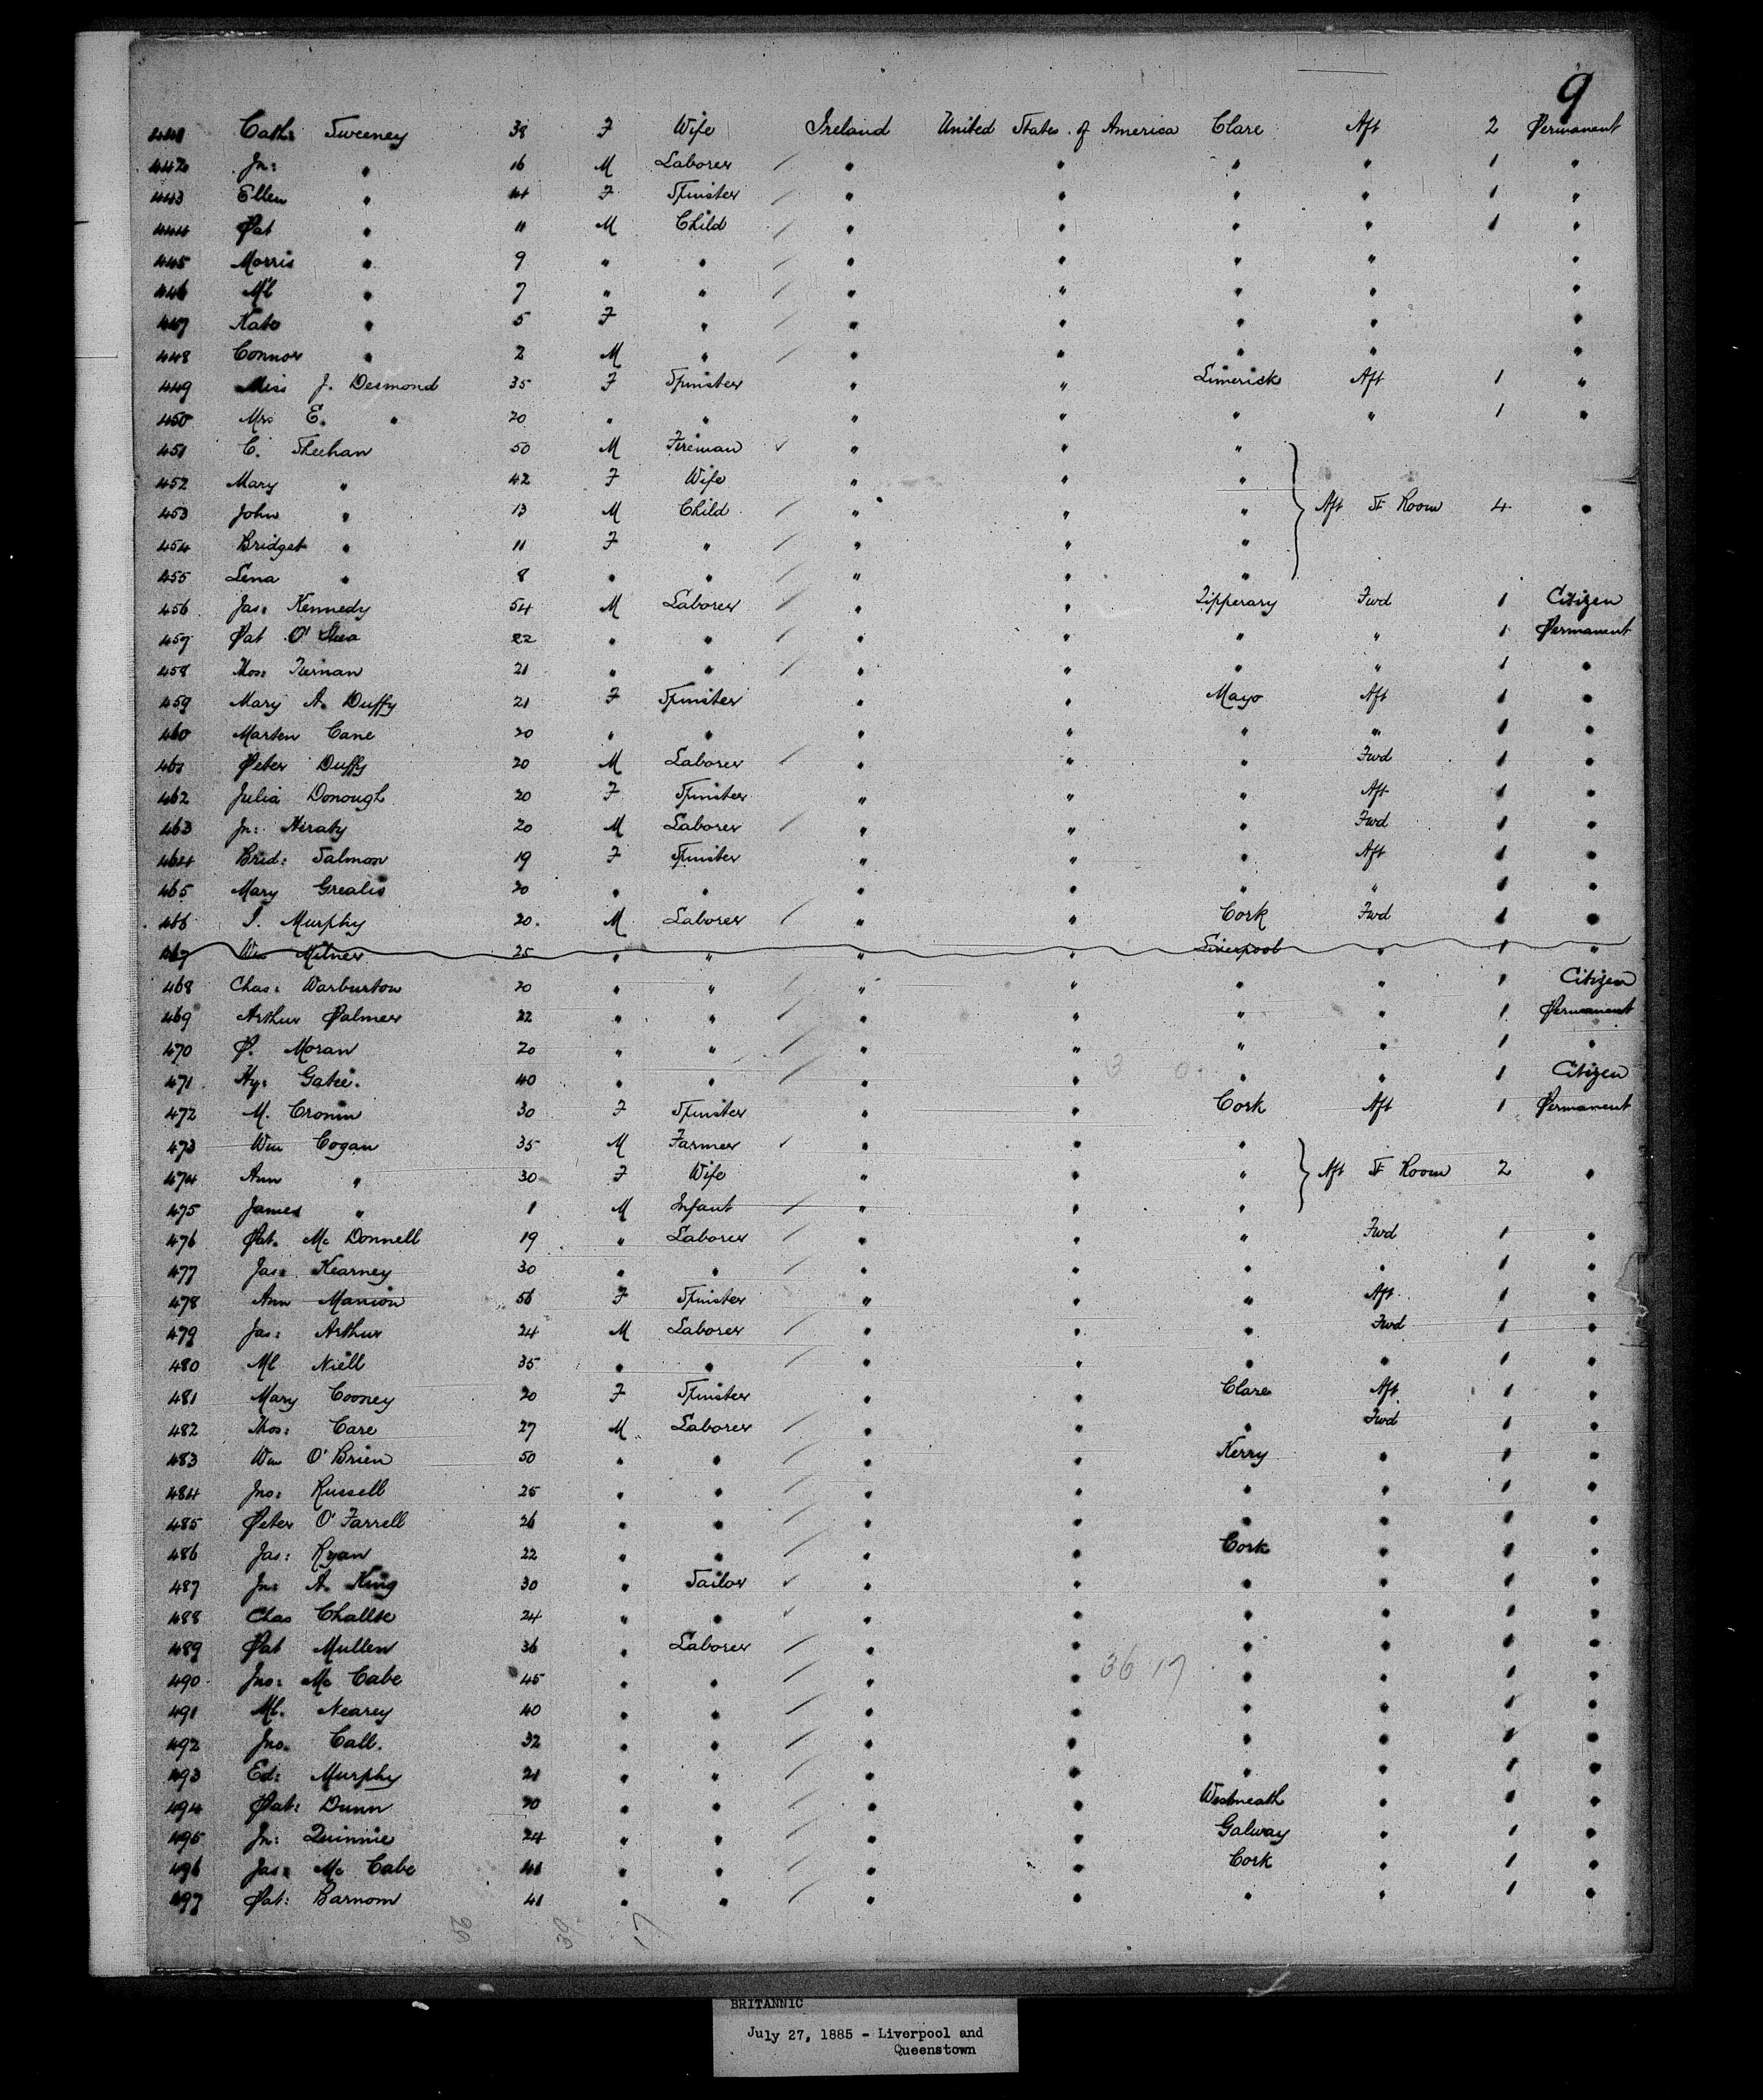 9
441 Cath: Sweeney 38 F Wife Ireland United States of America Clare Aft 2 Permanent
442 Jn: " 16 M Laborer / " " " " 1 "
443 Ellen " 14 F Spinster / " " " " 1 "
444 Pat " 11 M Child / " " " " 1 "
445 Morris " 9 " " / " " " " "
446 Ml " 7 " " / " " " " "
447 Kate " 5 F " / " " " " "
448 Connor " 2 M " / " " " " "
449 Miss J. Desmond 35 F Spinster " " Limerick Aft 1 "
450 Mrs E. " 20 " " " " " " 1 "
451 C. Sheehan 50 M Fireman ✓ " " "
452 Mary " 42 F Wife " " "
453 John " 13 M Child / " " " Aft St Room 4 "
454 Bridget " 11 F " / " " "
455 Lena " 8 " " / " " "
456 Jas: Kennedy 54 M Laborer / " " Tipperary Fwd 1 Citizen
457 Pat O'Shea 22 " " / " " " " 1 Permanent
458 Thos: Tiernan 21 " " / " " " " 1 "
459 Mary A. Duffy 21 F Spinster " " Mayo Aft 1 "
460 Marten Cane 20 " " " " " " 1 "
461 Peter Duffy 20 M Laborer / " " " Fwd 1 "
462 Julia Donough 20 F Spinster " " " Aft 1 "
463 Jn: Heraty 20 M Laborer / " " " Fwd 1 "
464 Brid: Salmon 19 F Spinster " " " Aft 1 "
465 Mary Grealis 20 " " " " " " 1 "
466 J. Murphy 20 M Laborer / " " Cork Fwd 1 "
467 Wm Milner 25 " " " " Liverpool " 1 "
468 Chas: Warburton 20 " " / " " " " 1 Citizen
469 Arthur Palmer 22 " " / " " " " 1 Permanent
470 P. Moran 20 " " / " " " " 1 "
471 Hy: 40 " " / " " " " 1 Citizen
472 M. Cronin 30 F Spinster " " Cork Aft 1 Permanent
473 Wm Cogan 35 M Farmer ✓ " " "
474 Ann " 30 F Wife " " " Aft St Room 2 "
475 James " 1 M Infant / " " "
476 Pat. Mc Donnell 19 " Laborer / " " " Fwd 1 "
477 Jas: Kearney 30 " " / " " " " 1 "
478 Ann Manion 56 F Spinster " " " Aft 1 "
479 Jas: Arthur 24 M Laborer / " " " Fwd 1 "
480 Ml Niell 35 " " / " " " " 1 "
481 Mary Cooney 20 F Spinster " " Clare Aft 1 "
482 Thos: Care 27 M Laborer / " " " Fwd 1 "
483 Wm O'Brien 50 " " / " " Kerry " 1 "
484 Jno: Russell 25 " " / " " " " 1 "
485 Peter O'Farrell 26 " " / " " " " 1 "
486 Jas: Ryan 22 " " / " " Cork " 1 "
487 Jn: A. King 30 " Tailor ✓ " " " " 1 "
488 Chas 24 " " ✓ " " " " 1 "
489 Pat Mullen 36 " Laborer / " " " " 1 "
36 17
490 Jno: Mc Cabe 45 " " / " " " " 1 "
491 Ml. Nearey 40 " " / " " " " 1 "
492 Jno. Call. 32 " " / " " " " 1 "
493 Ed: Murphy 21 " " / " " " " 1 "
494 Pat: Dunn 20 " " / " " Westmeath " 1 "
495 Jn: Quinnie 24 " " / " " Galway " 1 "
496 Jas: Mc Cabe 41 " " / " " Cork " 1 "
497 Pat: Barnom 41 " " / " " " " 1 "
BRITANNIC
July 27, 1885 - Liverpool and
Queenstown